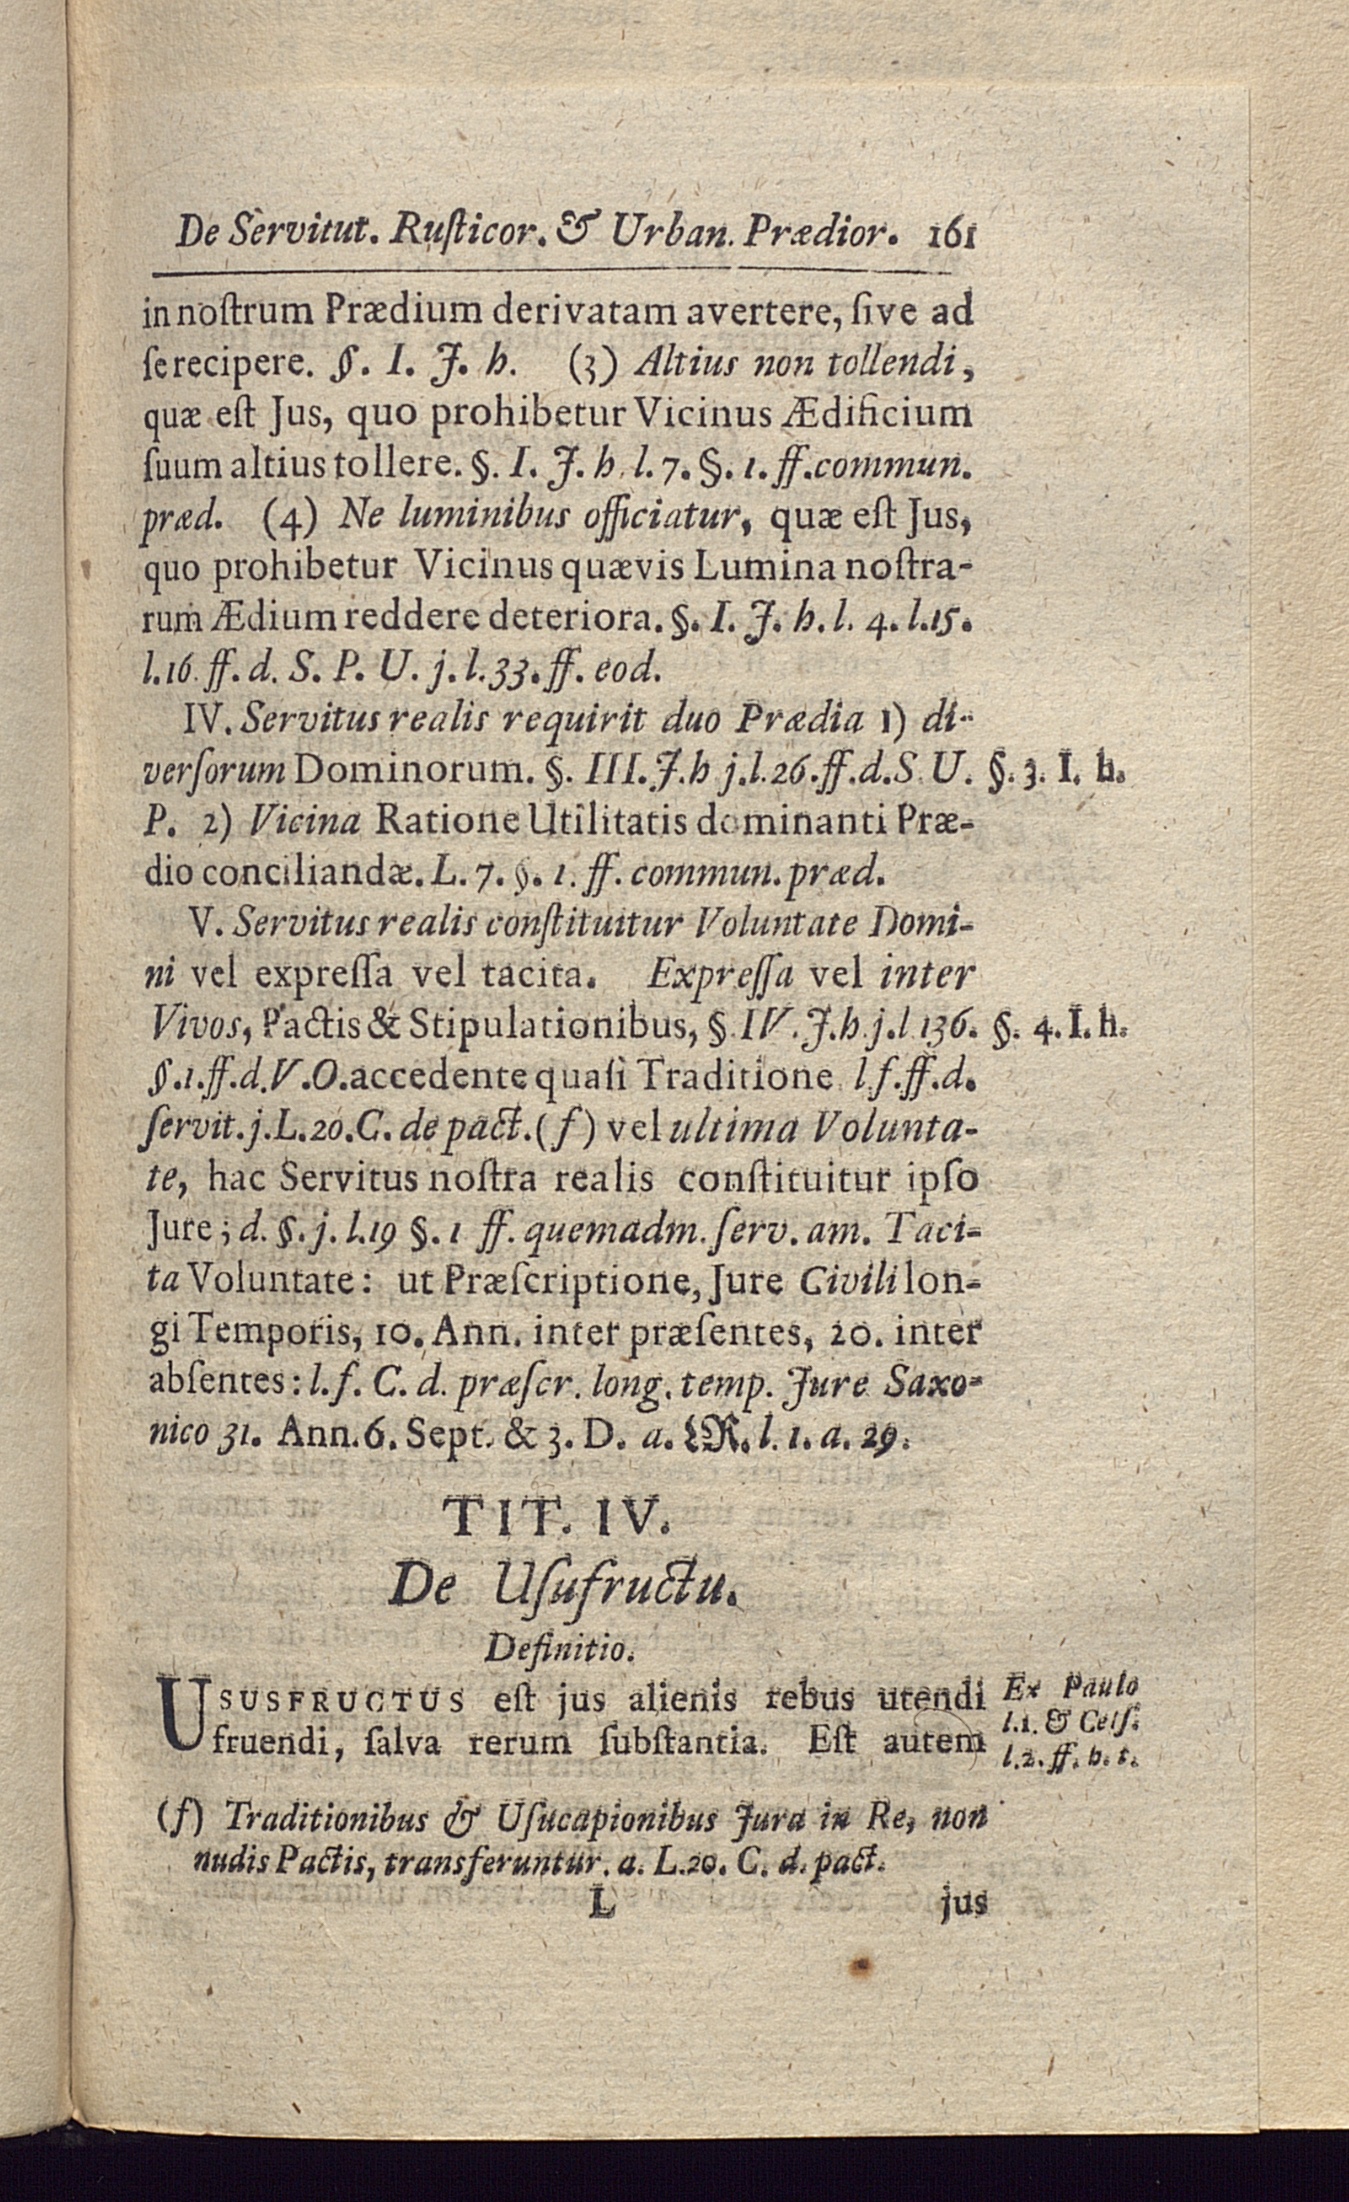 De Servitut. Rusticor. & Urban. Prædior. 161
in noſtrum Prædium derivatam avertere, ſive ad
ſe recipere. §. I. J. h. (3) Altius non tollendi,
quæ eſt Jus, quo prohibetur Vicinus Ædificium
ſuum altius tollere. §. I. J. h. l. 7. §. 1. ff. commun.
præd. (4) Ne luminibus officiatur, quæ eſt Jus,
quo prohibetur Vicinus quævis Lumina noſtra-
rum Ædium reddere deteriora. §. I. J. h. l. 4. l. 15.
l. 16. ff. d. S. P. U. j. l. 33. ff. eod.
IV. Servitus realis requirit duo Prædia 1) di-
verſorum Dominorum. §. III. J. h j. l. 26. ff. d. S. U. §. 3. I. h.
P. 2) Vicina Ratione Utilitatis dominanti Præ-
dio conciliandæ. L. 7. §. 1. ff. commun. præd.
V. Servitus realis conſtituitur Voluntate Domi-
ni vel expreſſa vel tacita. Expreſſa vel inter
Vivos, Pactis & Stipulationibus, § IV. J. h. j. l 136. §. 4. I. h.
§. 1. ff. d. V. O. accedente quaſi Traditione l. f. ff. d.
ſervit. j. L. 20. C. de pact. (f) vel ultima Volunta-
te, hac Servitus noſtra realis conſtituitur ipſo
Jure; d. §. j. l. 19 §. 1 ff. quemadm. ſerv. am. Taci-
ta Voluntate: ut Præſcriptione, Jure Civili lon-
gi Temporis, 10. Ann. inter præſentes, 20. inter
abſentes: l. f. C. d. præſcr. long. temp. Jure Saxo-
nico 31. Ann. 6. Sept. & 3. D. a. LR. l. 1. a. 29.
TIT. IV.
De Uſufructu.
Definitio.
USUSFRUCTUS eſt jus alienis rebus utendi
fruendi, ſalva rerum ſubſtantia. Eſt autem
Ex Paulo
l. 1. & Celſ.
l. 2. ff. h. t.
(f) Traditionibus & Uſucapionibus Jura in Re, non
nudis Pactis, transferuntur. a. L. 20. C. d. pact.
L jus